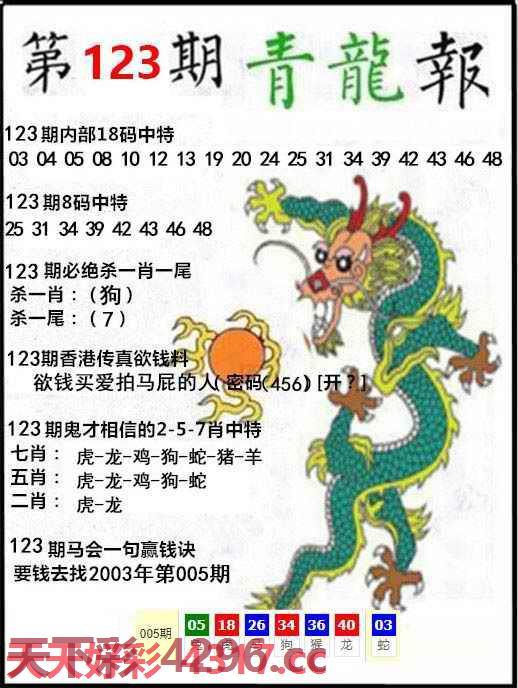 第123期青龍報
123期内部18码中特
03 04 05 08 10 12 13 19 20 24 25 31 34 39 42 43 46 48
123期8码中特
25 31 34 39 42 43 46 48
123期必绝杀一肖一尾
杀一肖：(狗)
杀一尾：(7)
123期香港传真欲钱料
欲钱买爱拍马屁的人(密码(456)[开？]
123期鬼才相信的2-5-7肖中特
七肖：虎-龙-鸡-狗-蛇-猪-羊
五肖：虎-龙-鸡-狗-蛇
二肖：虎-龙
123期马会一句赢钱诀
要钱去找2003年第005期
005期 05 18 26 34 36 40 03
狗 猴 龙 蛇
天下好彩4296.cc